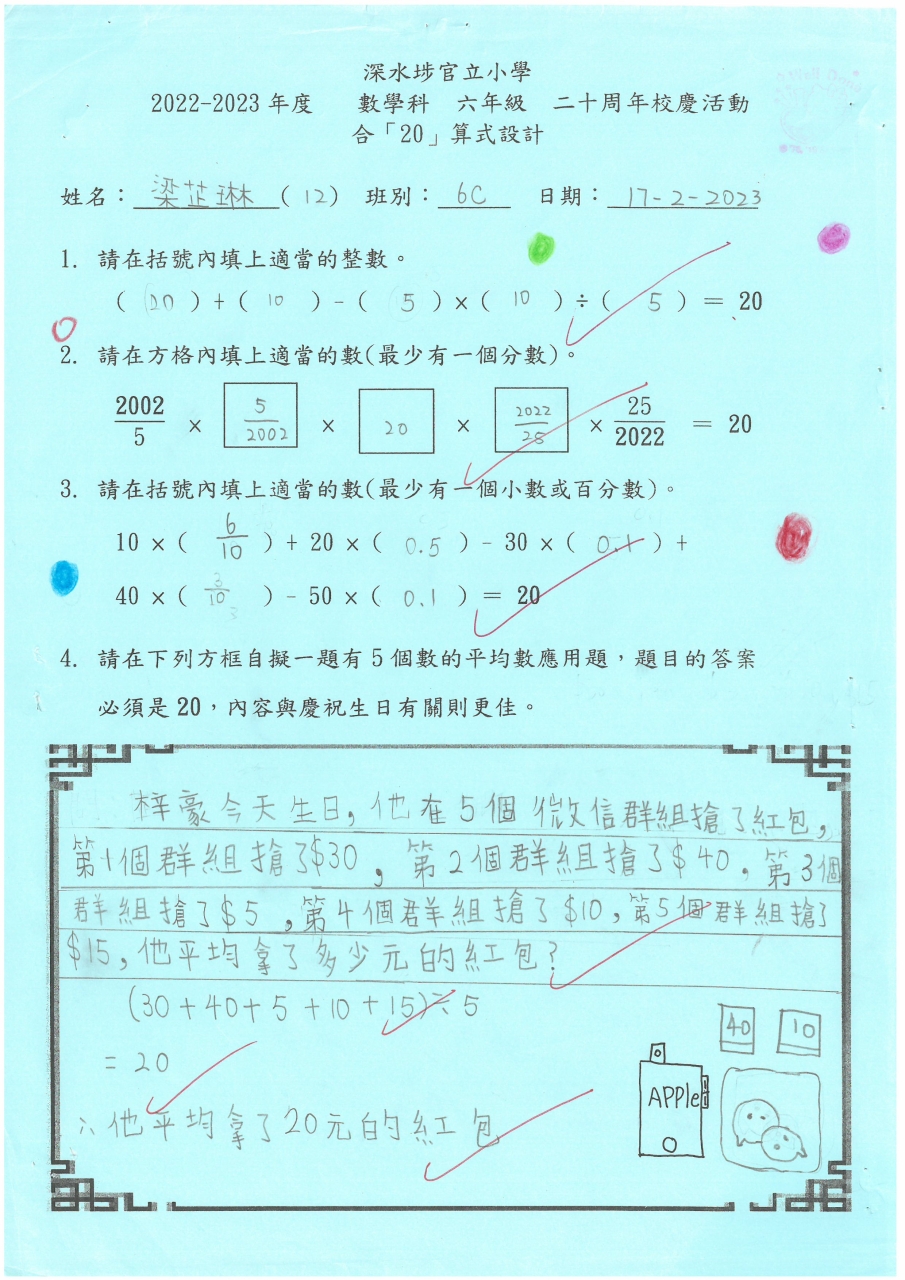 深水埗官立小學
2022-2023 年度 數學科 六年級 二十周年校慶活動
合「20」算式設計
姓名：梁芷琳(12) 班別：6C 日期：17-2-2023
1. 請在括號內填上適當的整數。
(20)+(10)-(5)×(10)÷(5)=20
2. 請在方格內填上適當的數(最少有一個分數)。
2002/5 × 5/2002 × 20 × 2022/25 × 25/2022 = 20
3. 請在括號內填上適當的數(最少有一個小數或百分數)。
10×(6/10)+20×(0.5)-30×(0.1)+
40×(3/10)-50×(0.1)=20
4. 請在下列方框自擬一題有5個數的平均數應用題，題目的答案
必須是20，內容與慶祝生日有關則更佳。
梓豪今天生日，他在5個微信群組搶了紅包，
第1個群組搶了$30，第2個群組搶了$40，第3個
群組搶了$5，第4個群組搶了$10，第5個群組搶了
$15，他平均拿了多少元的紅包？
(30+40+5+10+15)÷5
=20
∴他平均拿了20元的紅包
40 10
APPle